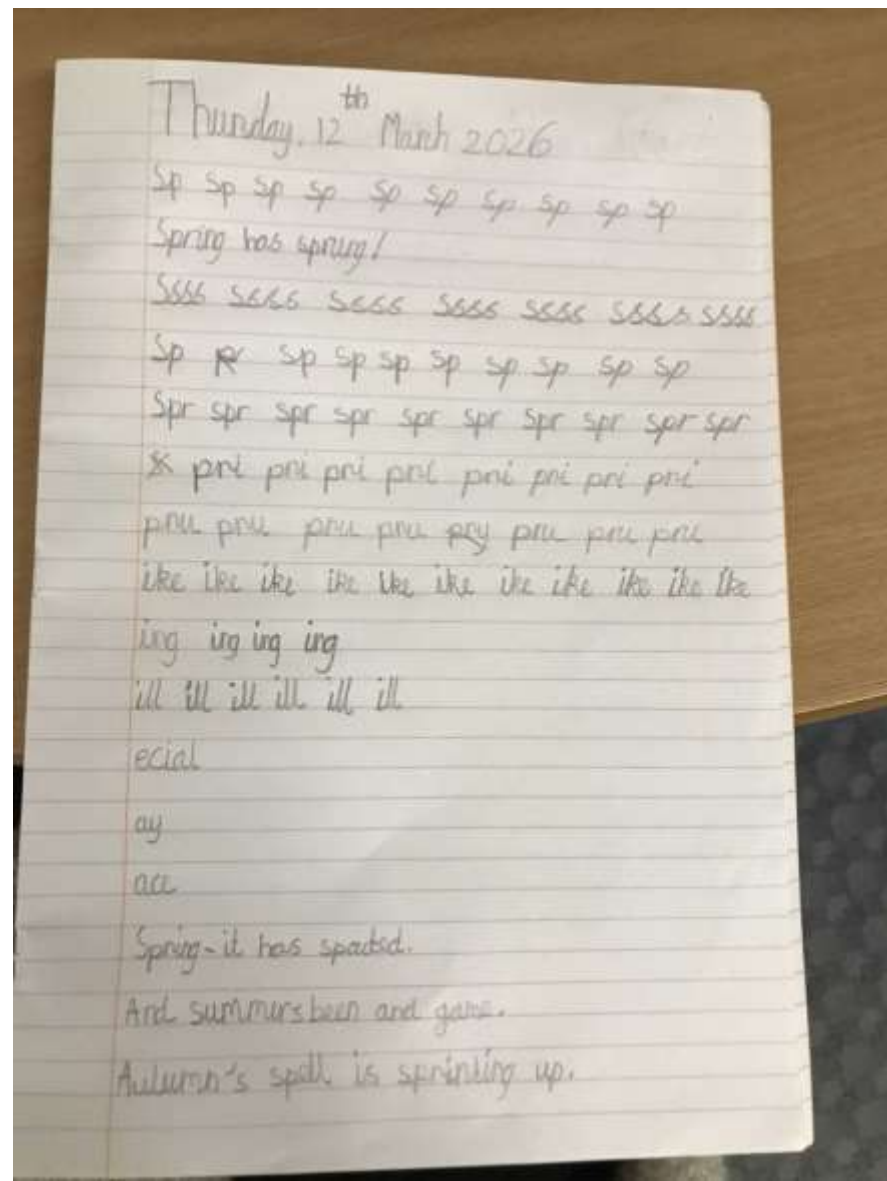 Thursday, 12th March 2026
Sp Sp Sp Sp Sp Sp Sp Sp Sp Sp
Spring has sprung!
Ssss Ssss Ssss Ssss Ssss Ssss Ssss
Sp Sp Sp Sp Sp Sp Sp Sp Sp
Spr spr spr spr spr spr spr spr spr spr
pri pri pri pri pri pri pri pri
pru pru pru pru pry pru pru pru
ike ike ike ike ike ike ike ike ike ike ike
ing ing ing ing
ill ill ill ill ill ill
ecial
ay
ace
Spring-it has
And summers been and
Autumn's spell is sprinting up.